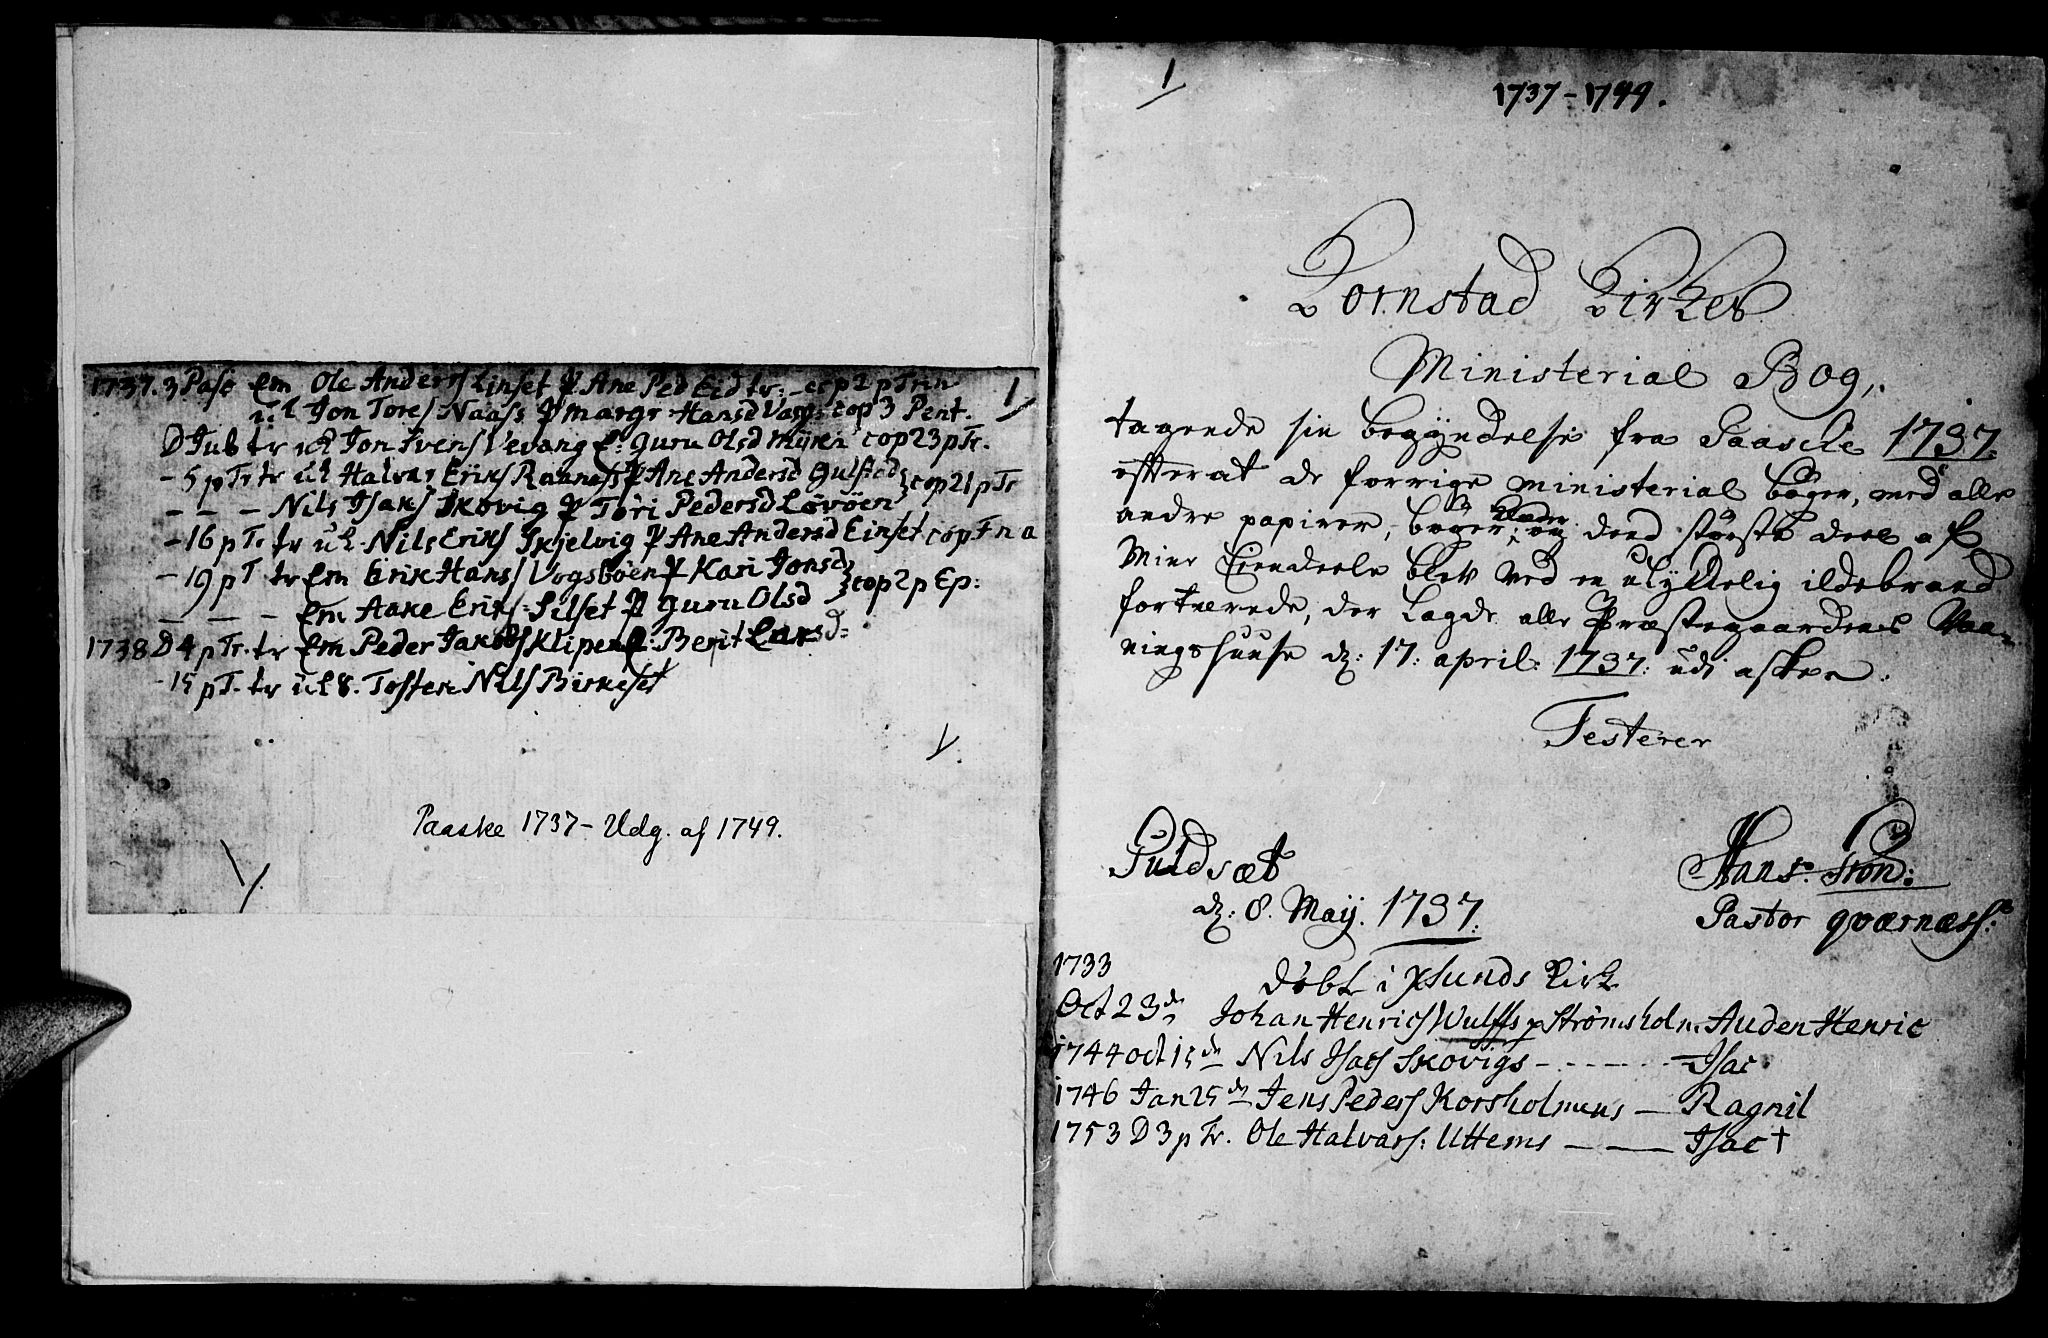 1737. 3 Pasc Em Ole Anders Einset & Ane Ped Eid tr: cop 2 p Trin
uk Jon Tores Naass & Margr Hansd Vaag: cop 3 Pent.
D Jub tr uk Jon Svens Vevang & Guru Olsd Myren cop 23 p Tr.
- 5 p Tr tr uk Halvar Eriks Raanass & Ane Andersd Gulseted
- - - Nils Isaks Skovig & Tøri Pedersd Løvöen } cop 21 p Tr
- 16 p Tr tr uk Nils Eriks Skjelvig & Ane Andersd Einset cop F n a
- 19 p T tr Em Erik Hans Vogsböen & Kari Jonsd
- - - Em Aake Eriks Silset & Guru Olsd } cop 2 p Ep:
1738 D 4 p Tr. tr Em Peder Jakobs Klipen & Berit Larsd
- 15 p T. tr uk 8. Tosten Nils Birkeset
1
Paaske 1737 - Udg. af 1749.
1
1737-1749.
Kornstad Kirkes
Ministerial Bog,
tagende sin begyndelse fra Paasche 1737.
efter at de forrige ministerial bøger, med alle
andre papirer, bøger, Klæder og deed største deel af
Mine Eiendeele blev ved en ulykkelig ildebrand
fortærede, der lagde alle Præstegaardens Vaa-
ningshuuse d: 17: april: 1737: udi asken.
Testerer
Guldsæt
d: 8. Maij. 1737.
Hans Strøm:
Pastor qværnæss:
1733
Döbt i Xsunds Kirk
Oct 23 de Johan Henrics Wulffs p Strömsholm Auden Henric
1744 oct 15 de Nils Isacs Skovigs - - - - - Isac
1746 Jan 25 de Jens Peders Korsholmens - Ragnil
1753 D 3 p Tr. Ole Halvars: Uttems - - Isac †